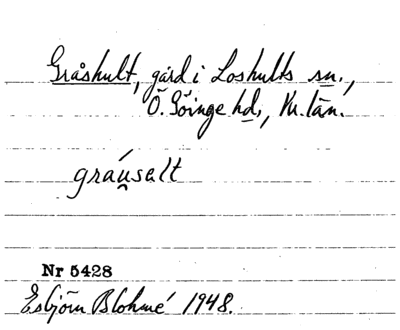 Gråshult, gård i Loshults sn.,
Ö. Göinge hd., Kr. län.
gráu̯salt
Nr 5428
Esbjörn Blohmé 1948.